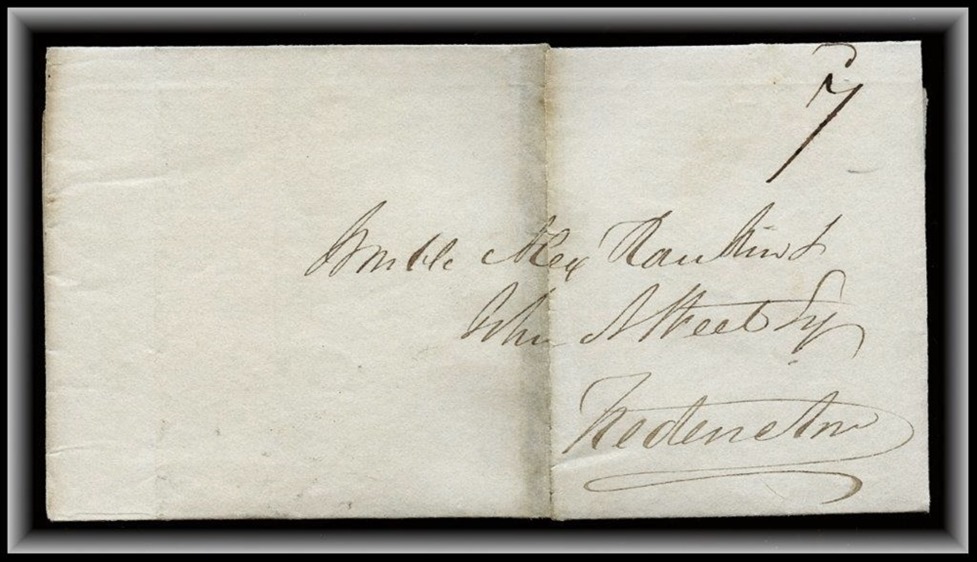 7
Honble Alex Rankin &
John A Street Esq
Fredericton